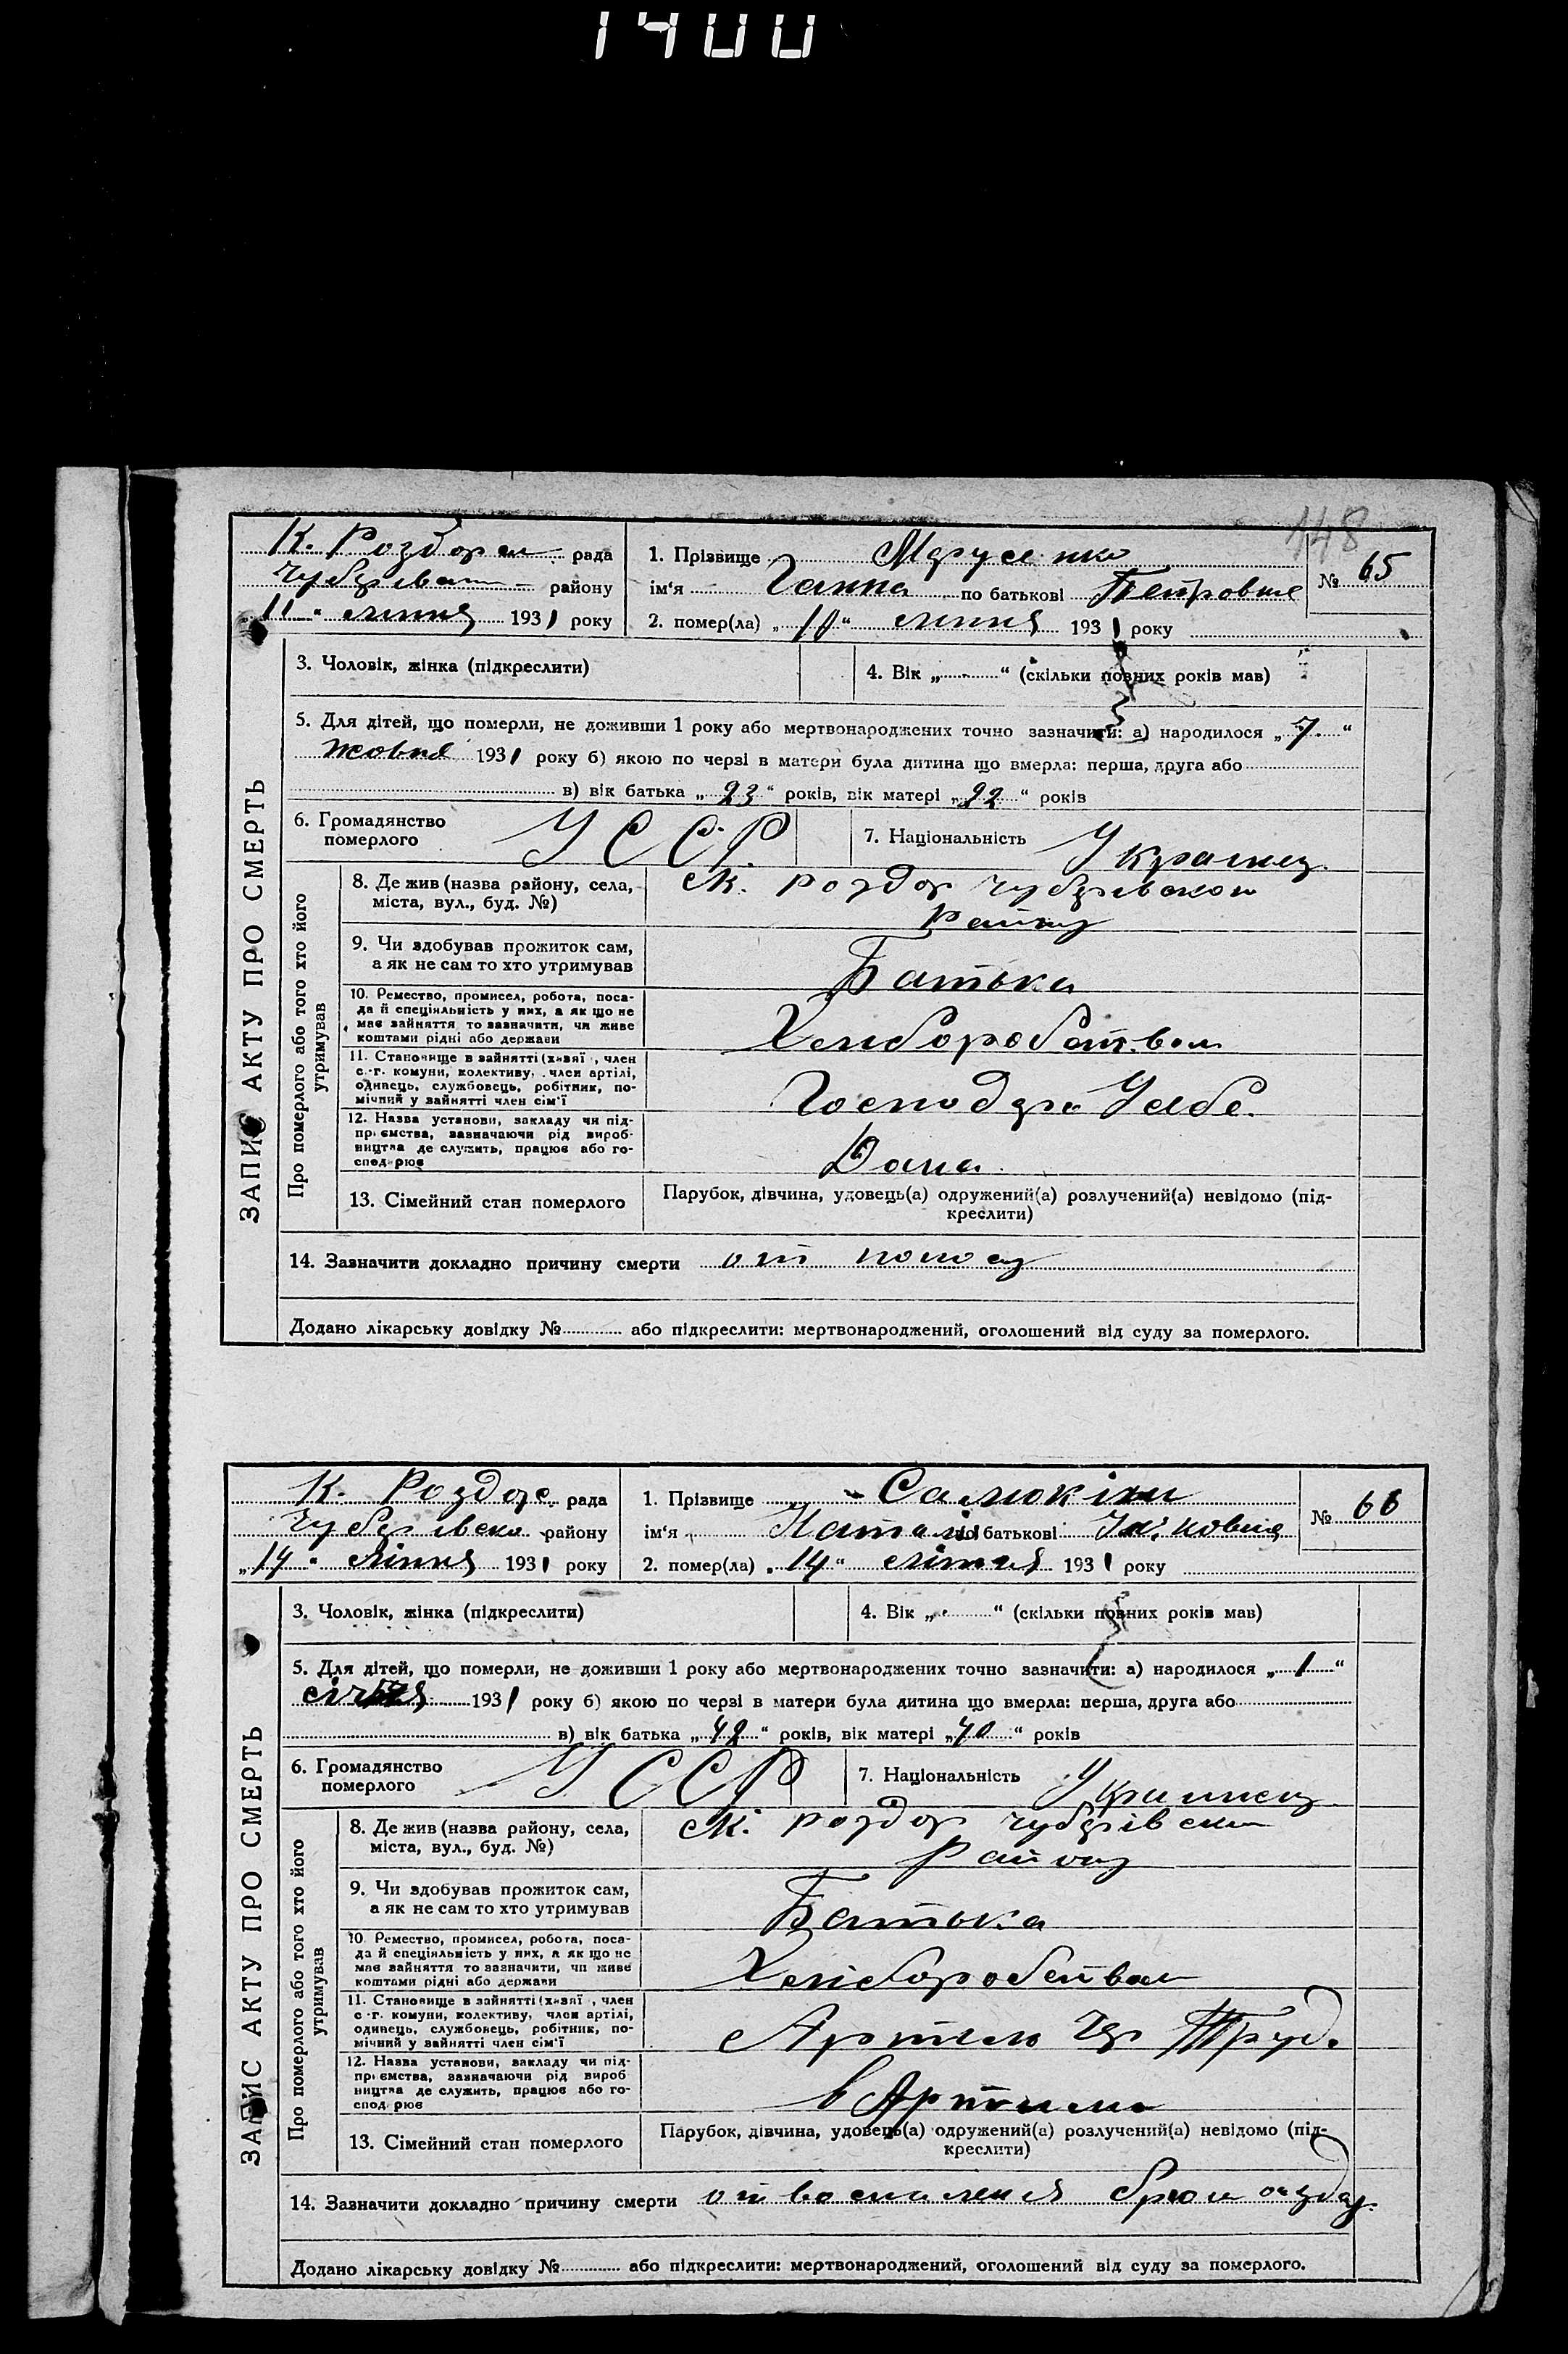 1400
148
К. Роздори рада
Чубарівськ району
„11“ липня 1931 року
1. Прізвище Марусенко
ім‘я Ганна по батькові Петровне
№ 65
2. помер(ла) „10“ липня 1931 року
ЗАПИС АКТУ ПРО СМЕРТЬ
3. Чоловік, жінка (підкреслити)
4. Вік „ “ (скільки повних років мав)
5. Для дітей, що померли, не доживши 1 року або мертвонароджених точно зазначити: а) народилося „7“
жовня 1931 року б) якою по черзі в матери була дитина що вмерла: перша, друга або
в) вік батька „23“ років, вік матері „22“ років
6. Громадянство
померлого
УССР
7. Національність Украинец
Про померлого або того хто його
утримував
8. Де жив (назва району, села,
міста, вул., буд. №)
Роздор Чубарівскои
Району
9. Чи здобував прожиток сам,
а як не сам то хто утримував
Батька
10. Ремество, промисел, робота, поса-
да й специяльність у них, а як що не
має зайняття то зазначити, чи живе
коштами рідні або держави
Хлиборобством
11. Становище в зайнятті (хазяї, член
с.-г. комуни, колективу, член артілі,
одинець, службовець, робітник, по-
мічний у зайнятті член сім‘ї
Господар У себе
12. Назва установи, закладу чи під-
приємства, зазначаючи рід вироб-
ництва де служить, працює або го-
сподарює
Дома
13. Сімейний стан померлого
Парубок, дівчина, удовець(а) одружений(а) розлучений(а) невідомо (під-
креслити)
14. Зазначити докладно причину смерти от поносу
Додано лікарську довідку № або підкреслити: мертвонароджений, оголошений від суду за померлого.
К. Роздор. рада
Чубарівско району
„14“ Липня 1931 року
1. Прізвище
ім‘я Наталія по батькові
№ 66
2. помер(ла) „14“ липня 1931 року
ЗАПИС АКТУ ПРО СМЕРТЬ
3. Чоловік, жінка (підкреслити)
4. Вік „ “ (скільки повних років мав)
5. Для дітей, що померли, не доживши 1 року або мертвонароджених точно зазначити: а) народилося „1“
січня 1931 року б) якою по черзі в матери була дитина що вмерла: перша, друга або
в) вік батька „42“ років, вік матері „40“ років
6. Громадянство
померлого
УССР
7. Національність Украинец
Про померлого або того хто його
утримував
8. Де жив (назва району, села,
міста, вул., буд. №)
Роздор Чубарівски
Району
9. Чи здобував прожиток сам,
а як не сам то хто утримував
Батька
10. Ремество, промисел, робота, поса-
да й специяльність у них, а як що не
має зайняття то зазначити, чи живе
коштами рідні або держави
Хлиборобством
11. Становище в зайнятті (хазяї, член
с.-г. комуни, колективу, член артілі,
одинець, службовець, робітник, по-
мічний у зайнятті член сім‘ї
Артилю Труд.
12. Назва установи, закладу чи під-
приємства, зазначаючи рід вироб
ництва де служить, працює або го-
сподарює
в Артили
13. Сімейний стан померлого
Парубок, дівчина, удовець(а) одружений(а) розлучений(а) невідомо (під-
креслити)
14. Зазначити докладно причину смерти от воспаления
Додано лікарську довідку № або підкреслити: мертвонароджений, оголошений від суду за померлого.